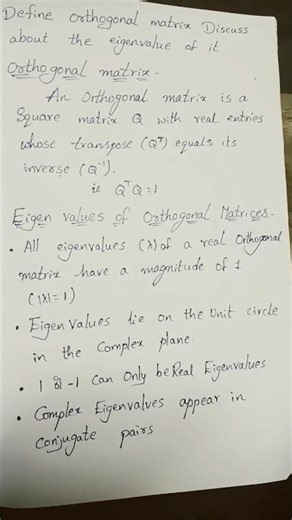 Define Orthogonal matrix Discuss
about the eigenvalue of it
Orthogonal matrix -
An Orthogonal matrix is a
Square matrix Q with real entries
whose transpose (Qᵀ) equals its
inverse (Q⁻¹).
ie QᵀQ = 1
Eigen values of Orthogonal Matrices -
• All eigenvalues (λ) of a real Orthogonal
matrix have a magnitude of 1
(|λ| = 1)
• Eigen Values lie on the Unit circle
in the Complex plane
• 1 or -1 can Only be Real Eigenvalues
• Complex Eigenvalves appear in
Conjugate pairs